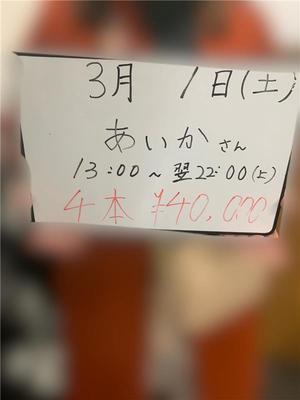 3月 1日(土)
あいかさん
13:00~翌22:00(土)
4本 ¥40,000